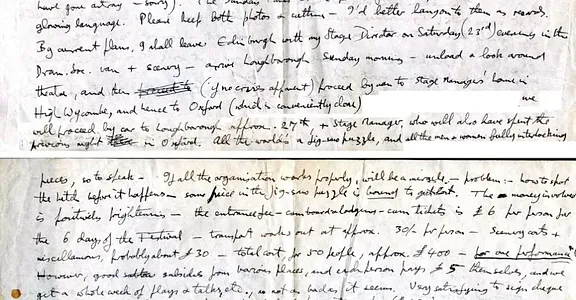 have gone astray — sorry). The Sunday
glowing language. Please keep both photos & cuttings — I'd better hang on to them as records.
By current plans, I shall leave Edinburgh with my Stage Director on Saturday (23rd) evening in the
Dram. Soc. van + scenery — arrive Loughborough Sunday morning — unload & look around
theatre, and then proceed to (if no crises apparent) proceed by van to Stage Manager's home in
High Wycombe, and hence to Oxford (which is conveniently close) we
will proceed by car to Loughborough approx. 27th + Stage Manager, who will also have spent the
previous night there in Oxford. All the world's a jig-saw puzzle, and all the men & women fully interlocking
pieces, so to speak — If all the organisation works properly, will be a miracle — problem:- how to spot
the hitch before it happens — some piece in the jig-saw puzzle is bound to get lost. The money involved
is positively frightening — the entrance fee — cum board & lodgings — cum tickets is £6 per person for
the 6 days of the Festival — transport works out at approx. 30/- per person — scenery costs +
miscellaneous, probably about £30 — total cost, for 50 people, approx. £400 — for one performance
However, good subsidies from various places, and each person pays £5 themselves, and we
get a whole week of plays & talks etc., so not as bad as it seems. Very satisfying to sign cheque